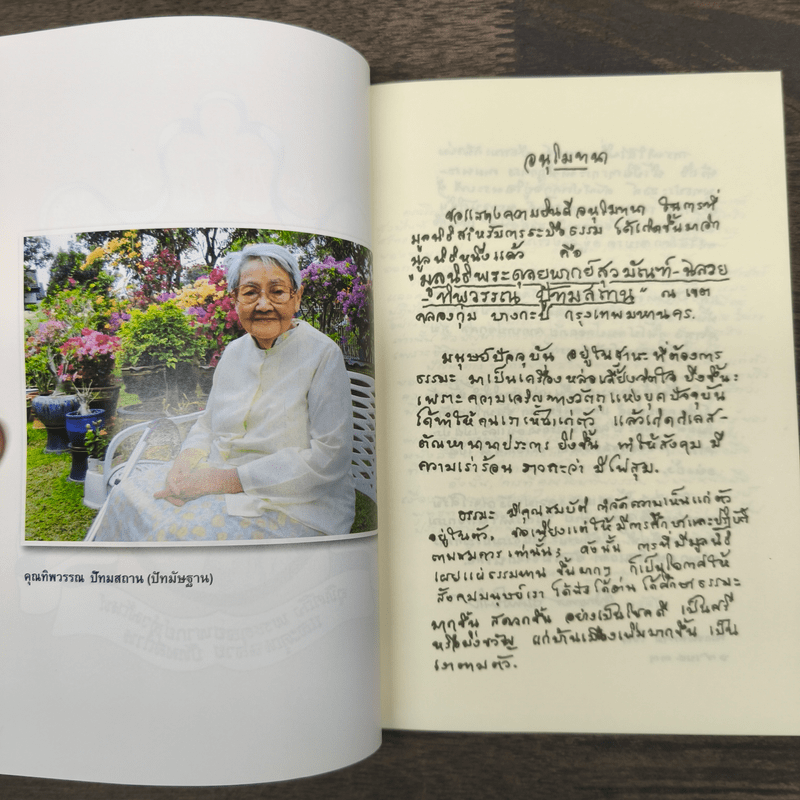 คุณทิพวรรณ ปัทมสถาน (ปัทมัษฐาน)
อนุโมทนา
ขอแสดงความยินดีอนุโมทนา ในการที่
มูลนิธิสำหรับการระบือธรรม ได้เกิดขึ้นมาอีก
มูลนิธิหนึ่งแล้ว คือ
"มูลนิธิพระดุลยพากย์สุวมัณฑ์-นิสวย
ทิพวรรณ ปัทมสถาน" ณ เขต
คลองกุ่ม บางกะปิ กรุงเทพมหานคร.
มนุษย์ปัจจุบัน อยู่ในฐานะที่ต้องการ
ธรรมะ มาเป็นเครื่องหล่อเลี้ยงจิตใจ ยิ่งขึ้น;
เพราะความเจริญทางวัตถุแห่งยุคปัจจุบัน
ได้ทำให้คนเราเห็นแก่ตัว แล้วเกิดกิเลส-
ตัณหานานาประการ ยิ่งขึ้น ทำให้สังคม มี
ความเร่าร้อน ราวกะว่า มีไฟสุม.
ธรรมะ มีคุณสมบัติ กำจัดความเห็นแก่ตัว
อยู่ในตัว, ขอเพียงแต่ให้มีการศึกษาและปฏิบัติ
ตามสมควร เท่านั้น; ดังนั้น การที่มีมูลนิธิ
เผยแผ่ธรรมทาน ขึ้นมากๆ ก็เป็นโอกาสให้
สังคมมนุษย์เรา ได้ฟัง ได้อ่าน ได้ศึกษาธรรมะ
มากขึ้น สะดวกขึ้น อย่างเป็นโชคดี เป็นศรี
หรือมิ่งขวัญ แก่บ้านเมืองเพิ่มมากขึ้น เป็น
เงาตามตัว.